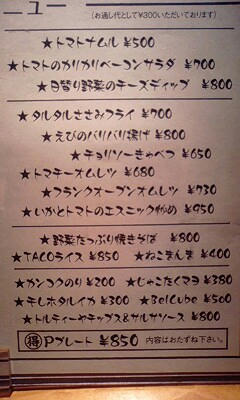 ニュー
(お通し代として¥300いただいております)
★トマトナムル ¥500
★トマトのカリカリベーコンサラダ ¥700
★日替り野菜のチーズディップ ¥800
★タルタルささみフライ ¥700
★えびのパリパリ揚げ ¥800
★チョリソーきゃべつ ¥650
★トマチーオムレツ ¥680
★フランクオープンオムレツ ¥730
★いかとトマトのエスニック炒め ¥950
★野菜たっぷり焼きそば ¥800
★TACOライス ¥850 ★ねこまんま ¥400
★カンコクのり ¥200 ★じゃこたくマヨ ¥380
★干しホタルイカ ¥300 ★BelCube ¥500
★トルティーヤチップス&サルサソース ¥800
得Pプレート ¥850 内容はおたずね下さい。